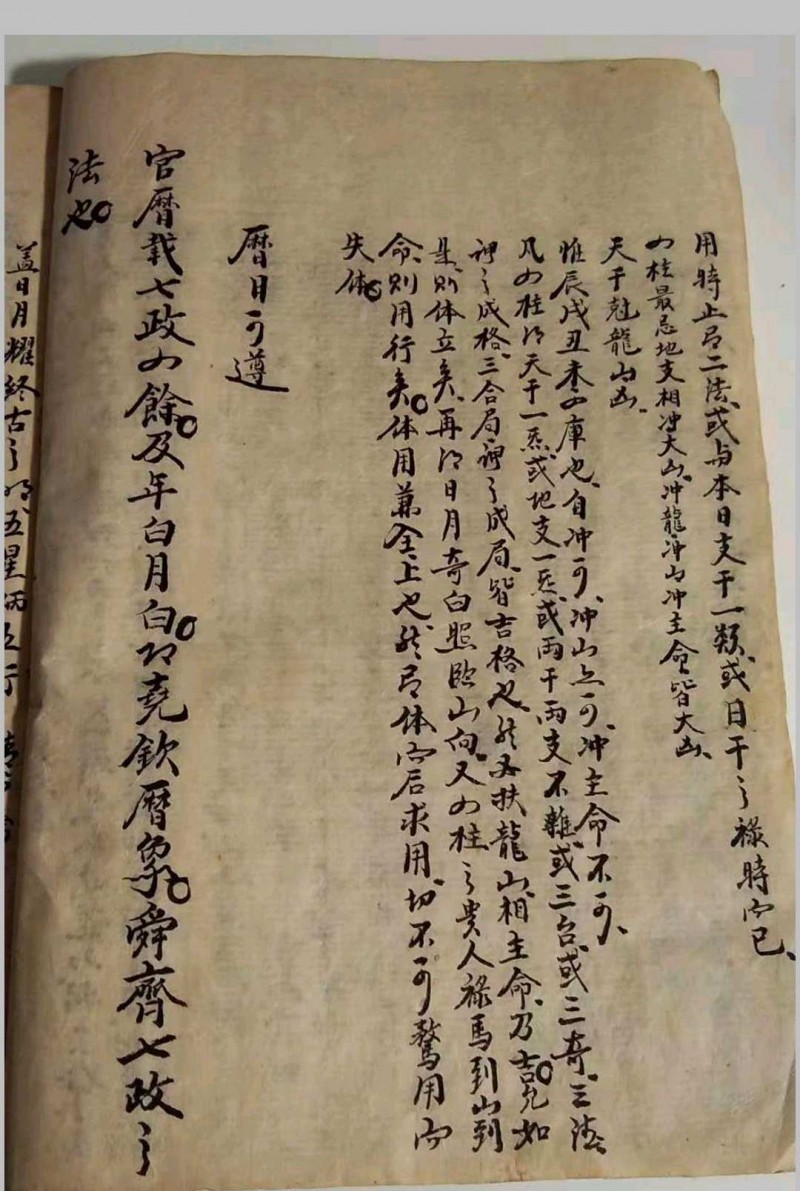 用時止有二法、或与本日支干一類、或日干之禄時而已、
四柱最忌地支相冲大凶、冲龍冲山冲主命皆大凶、
天干尅龍山凶、
惟辰戌丑未四庫也、自冲可、冲山亦可、冲主命不可、
凡四柱得天干一炁、或地支一炁、或两干两支不雜、或三台、或三奇、三法、
謂之成格、三合局謂之成局、皆吉格也、然必扶龍山、相主命、乃吉。凡如
是、則体立矣、再得日月奇白照臨山向、又四柱之貴人禄馬到山到
命、則用行矣。体用兼全、上也、然有体而后求用、切不可騖用而
失体。
曆日可遵
官曆載七政四餘。及年白月白。即堯欽曆象。舜齊七政之
法也。
蓋日月耀終古之明、五星炳五行